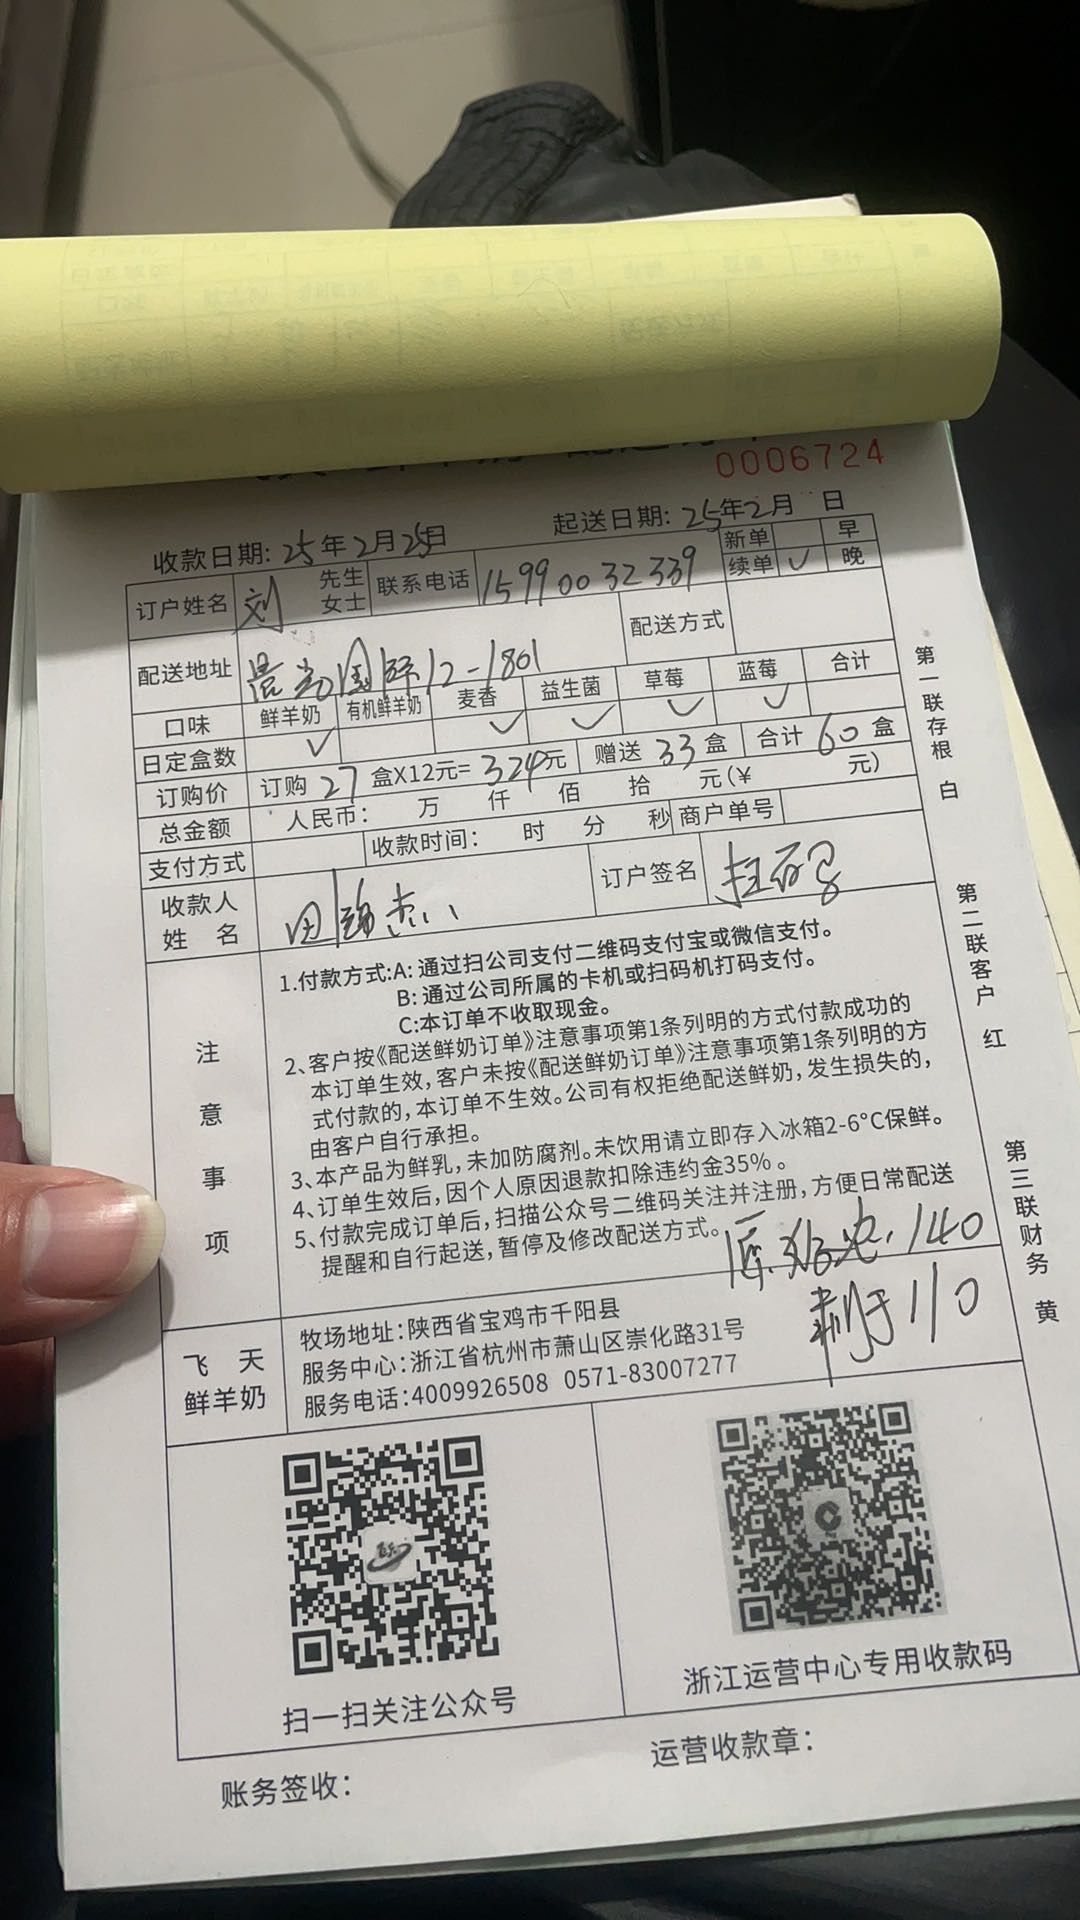 0006724
收款日期: 25年2月25日 起送日期: 25年2月 日
订户姓名 刘 先生 女士 联系电话 15990032339 新单 早
续单 ✓ 晚
配送地址 国际12-1801 配送方式
口味 鲜羊奶 有机鲜羊奶 麦香 益生菌 草莓 蓝莓 合计
日定盒数 ✓ ✓ ✓ ✓ ✓
订购价 订购 27 盒X12元= 324元 赠送 33 盒 合计 60 盒
总金额 人民币: 万 仟 佰 拾 元(¥ 元)
支付方式 收款时间: 时 分 秒 商户单号
收款人姓名 田 订户签名 扫码
注意事项
1.付款方式:A: 通过扫公司支付二维码支付宝或微信支付。
B: 通过公司所属的卡机或扫码机打码支付。
C:本订单不收取现金。
2、客户按《配送鲜奶订单》注意事项第1条列明的方式付款成功的
本订单生效, 客户未按《配送鲜奶订单》注意事项第1条列明的方
式付款的, 本订单不生效。公司有权拒绝配送鲜奶, 发生损失的,
由客户自行承担。
3、本产品为鲜乳, 未加防腐剂。未饮用请立即存入冰箱2-6°C保鲜。
4、订单生效后, 因个人原因退款扣除违约金35%。
5、付款完成订单后, 扫描公众号二维码关注并注册, 方便日常配送
提醒和自行起送, 暂停及修改配送方式。
140
剩于110
飞天鲜羊奶
牧场地址: 陕西省宝鸡市千阳县
服务中心: 浙江省杭州市萧山区崇化路31号
服务电话: 4009926508 0571-83007277
扫一扫关注公众号
浙江运营中心专用收款码
账务签收:
运营收款章:
第一联存根 白
第二联客户 红
第三联财务 黄